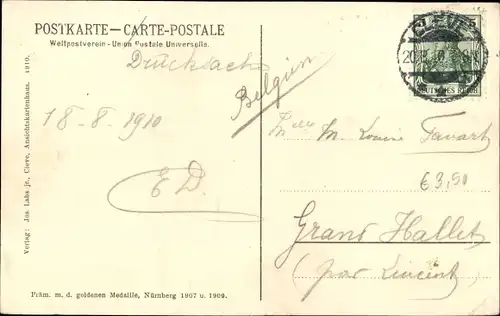 POSTKARTE — CARTE-POSTALE
Weltpostverein - Union Postale Universelle.
Drucksache
Belgien
18-8-1910
E D.
CLEVE
20
5
DEUTSCHES REICH
Mlle M. Louise Favart
€3,50
Grand Hallet
(par Lincent)
Verlag: Jos. Laks jr., Cleve, Ansichtskartenhaus. 1910.
Präm. m. d. goldenen Medaille, Nürnberg 1907 u. 1909.